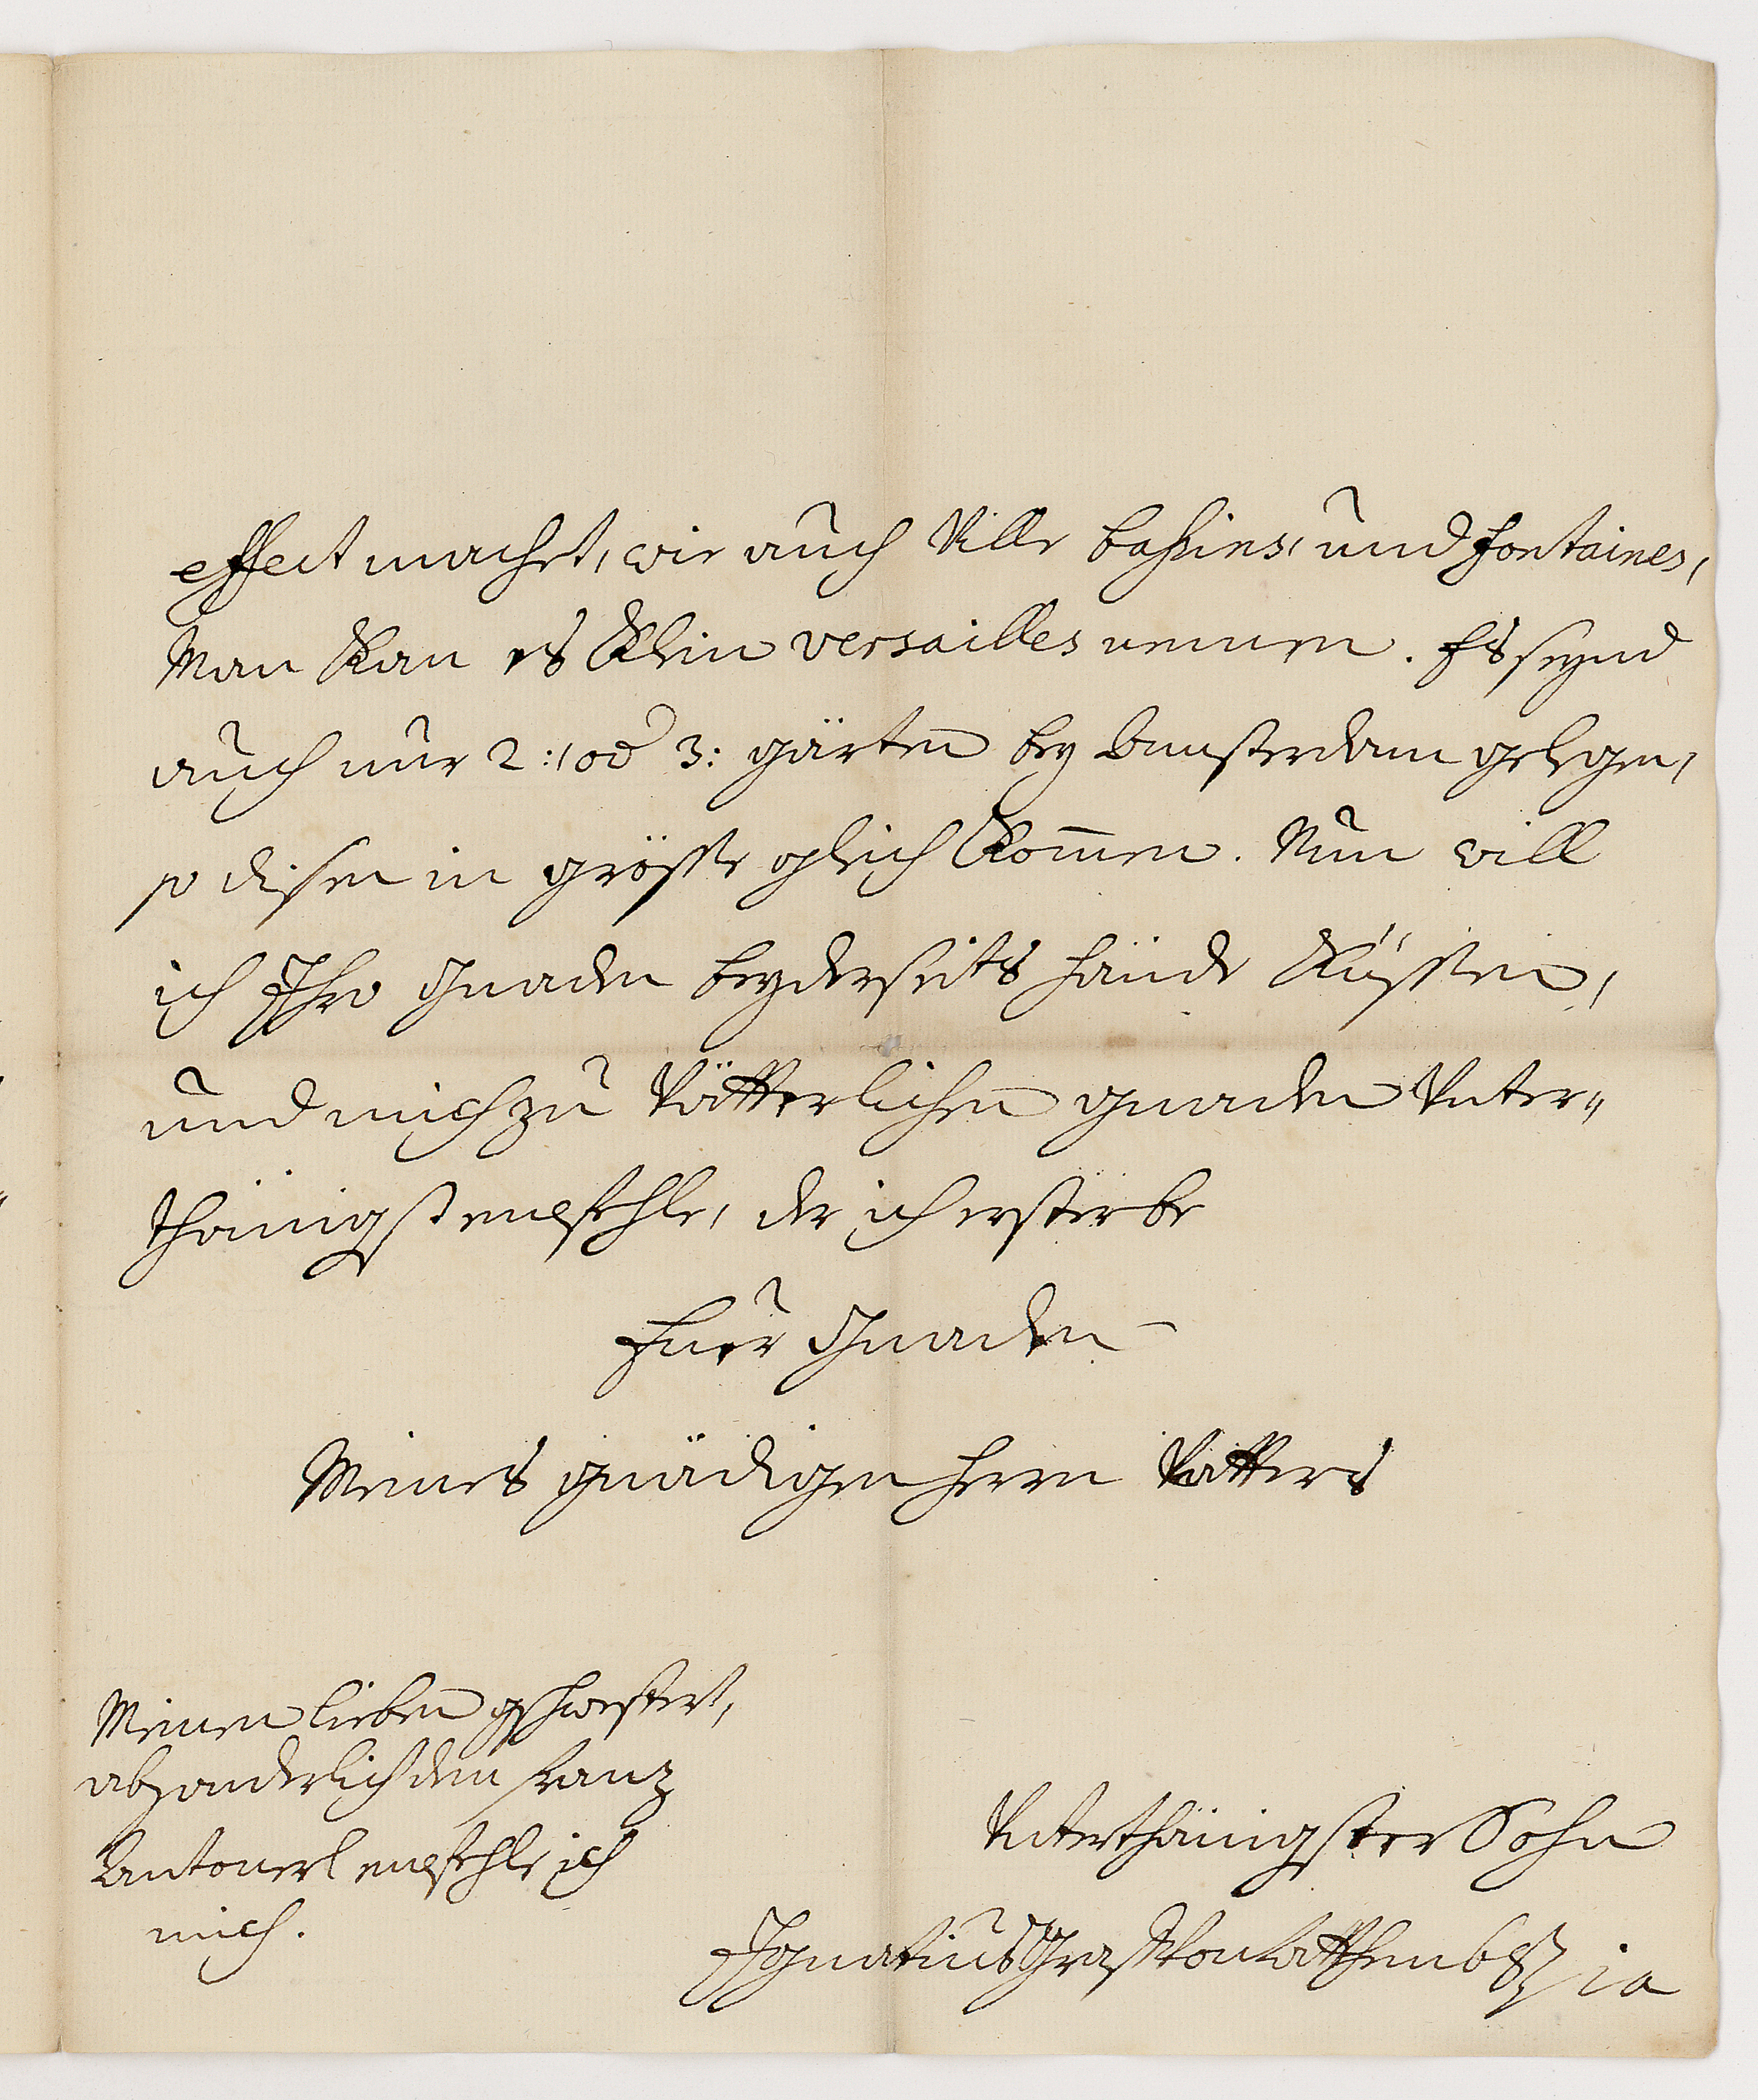 effect machet, wie auch Ville bassins, und fontaines,
Man Kan es Klein versailles nennen. Es seynd
auch nur 2: od 3: gärten bey Amsterdam gelegen,
so disen in grösse gleich Kom̄en. Nun will
ich Ihro Gnaden beyderseits Hände Küssen,
und mich zu Vätterlichen gnaden Unter„
thänigst empfehle, der ich ersterbe
Euer Gnaden
Meines gnädigen Herrn Vatters
Meinen lieben gschwistert,
absonderlich dem Franz
Antonerl empfehle ich
mich.
Unterthänigster Sohn
Ignatius Graf von